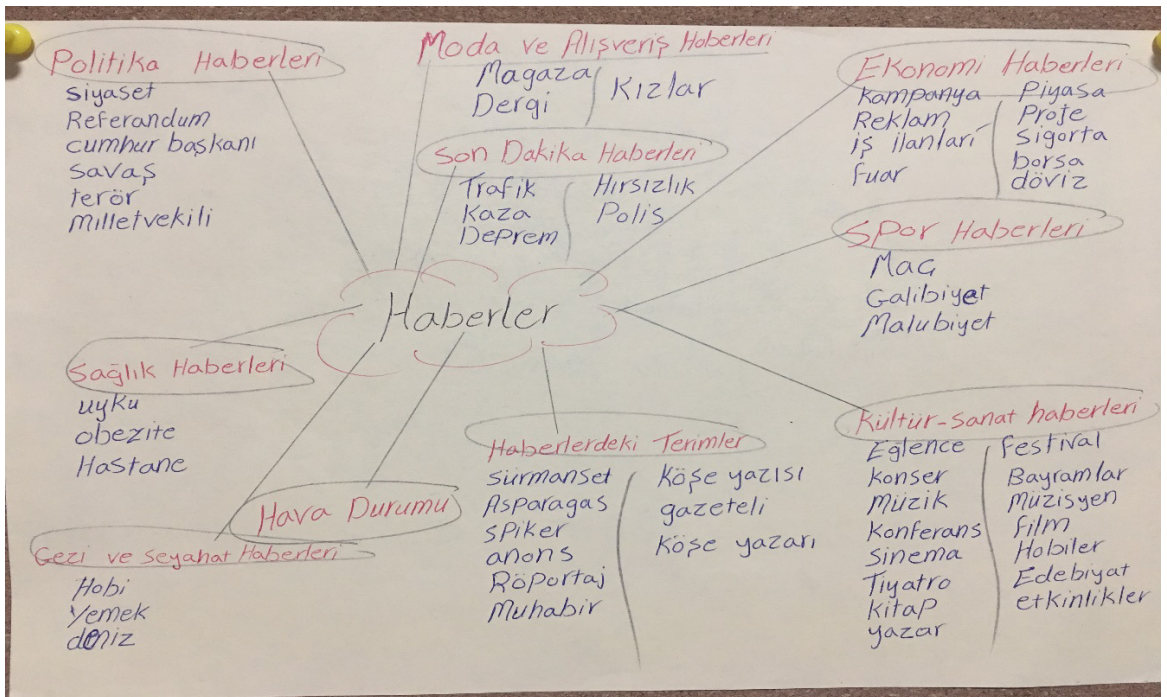 Politika Haberleri
siyaset
Referandum
cumhur başkanı
savaş
terör
milletvekili
Moda ve Alışveriş Haberleri
Magaza
Dergi
Kızlar
Son Dakika Haberleri
Trafik
Kaza
Deprem
Hırsızlık
Polis
Ekonomi Haberleri
Kampanya
Reklam
iş ilanları
fuar
Piyasa
Proje
Sigorta
borsa
döviz
Spor Haberleri
Maç
Galibiyet
Malubiyet
Haberler
Sağlık Haberleri
uyku
obezite
Hastane
Hava Durumu
Gezi ve Seyahat Haberleri
Hobi
Yemek
deniz
Haberlerdeki Terimler
sürmanset
Asparagas
spiker
anons
Röportaj
Muhabir
Köşe yazısı
gazeteli
Köşe yazarı
Kültür-sanat haberleri
Eğlence
Konser
Müzik
Konferans
Sinema
Tiyatro
Kitap
yazar
Festival
Bayramlar
Müzisyen
film
Hobiler
Edebiyat
etkinlikler